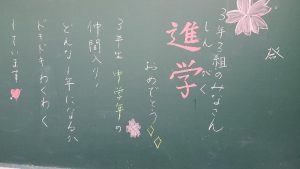 3年3組のみなさん
しん がく
進学
おめでとう
3年生 中学年の
仲間入り!
どんな1年になるか
ドキドキわくわく
しています♥